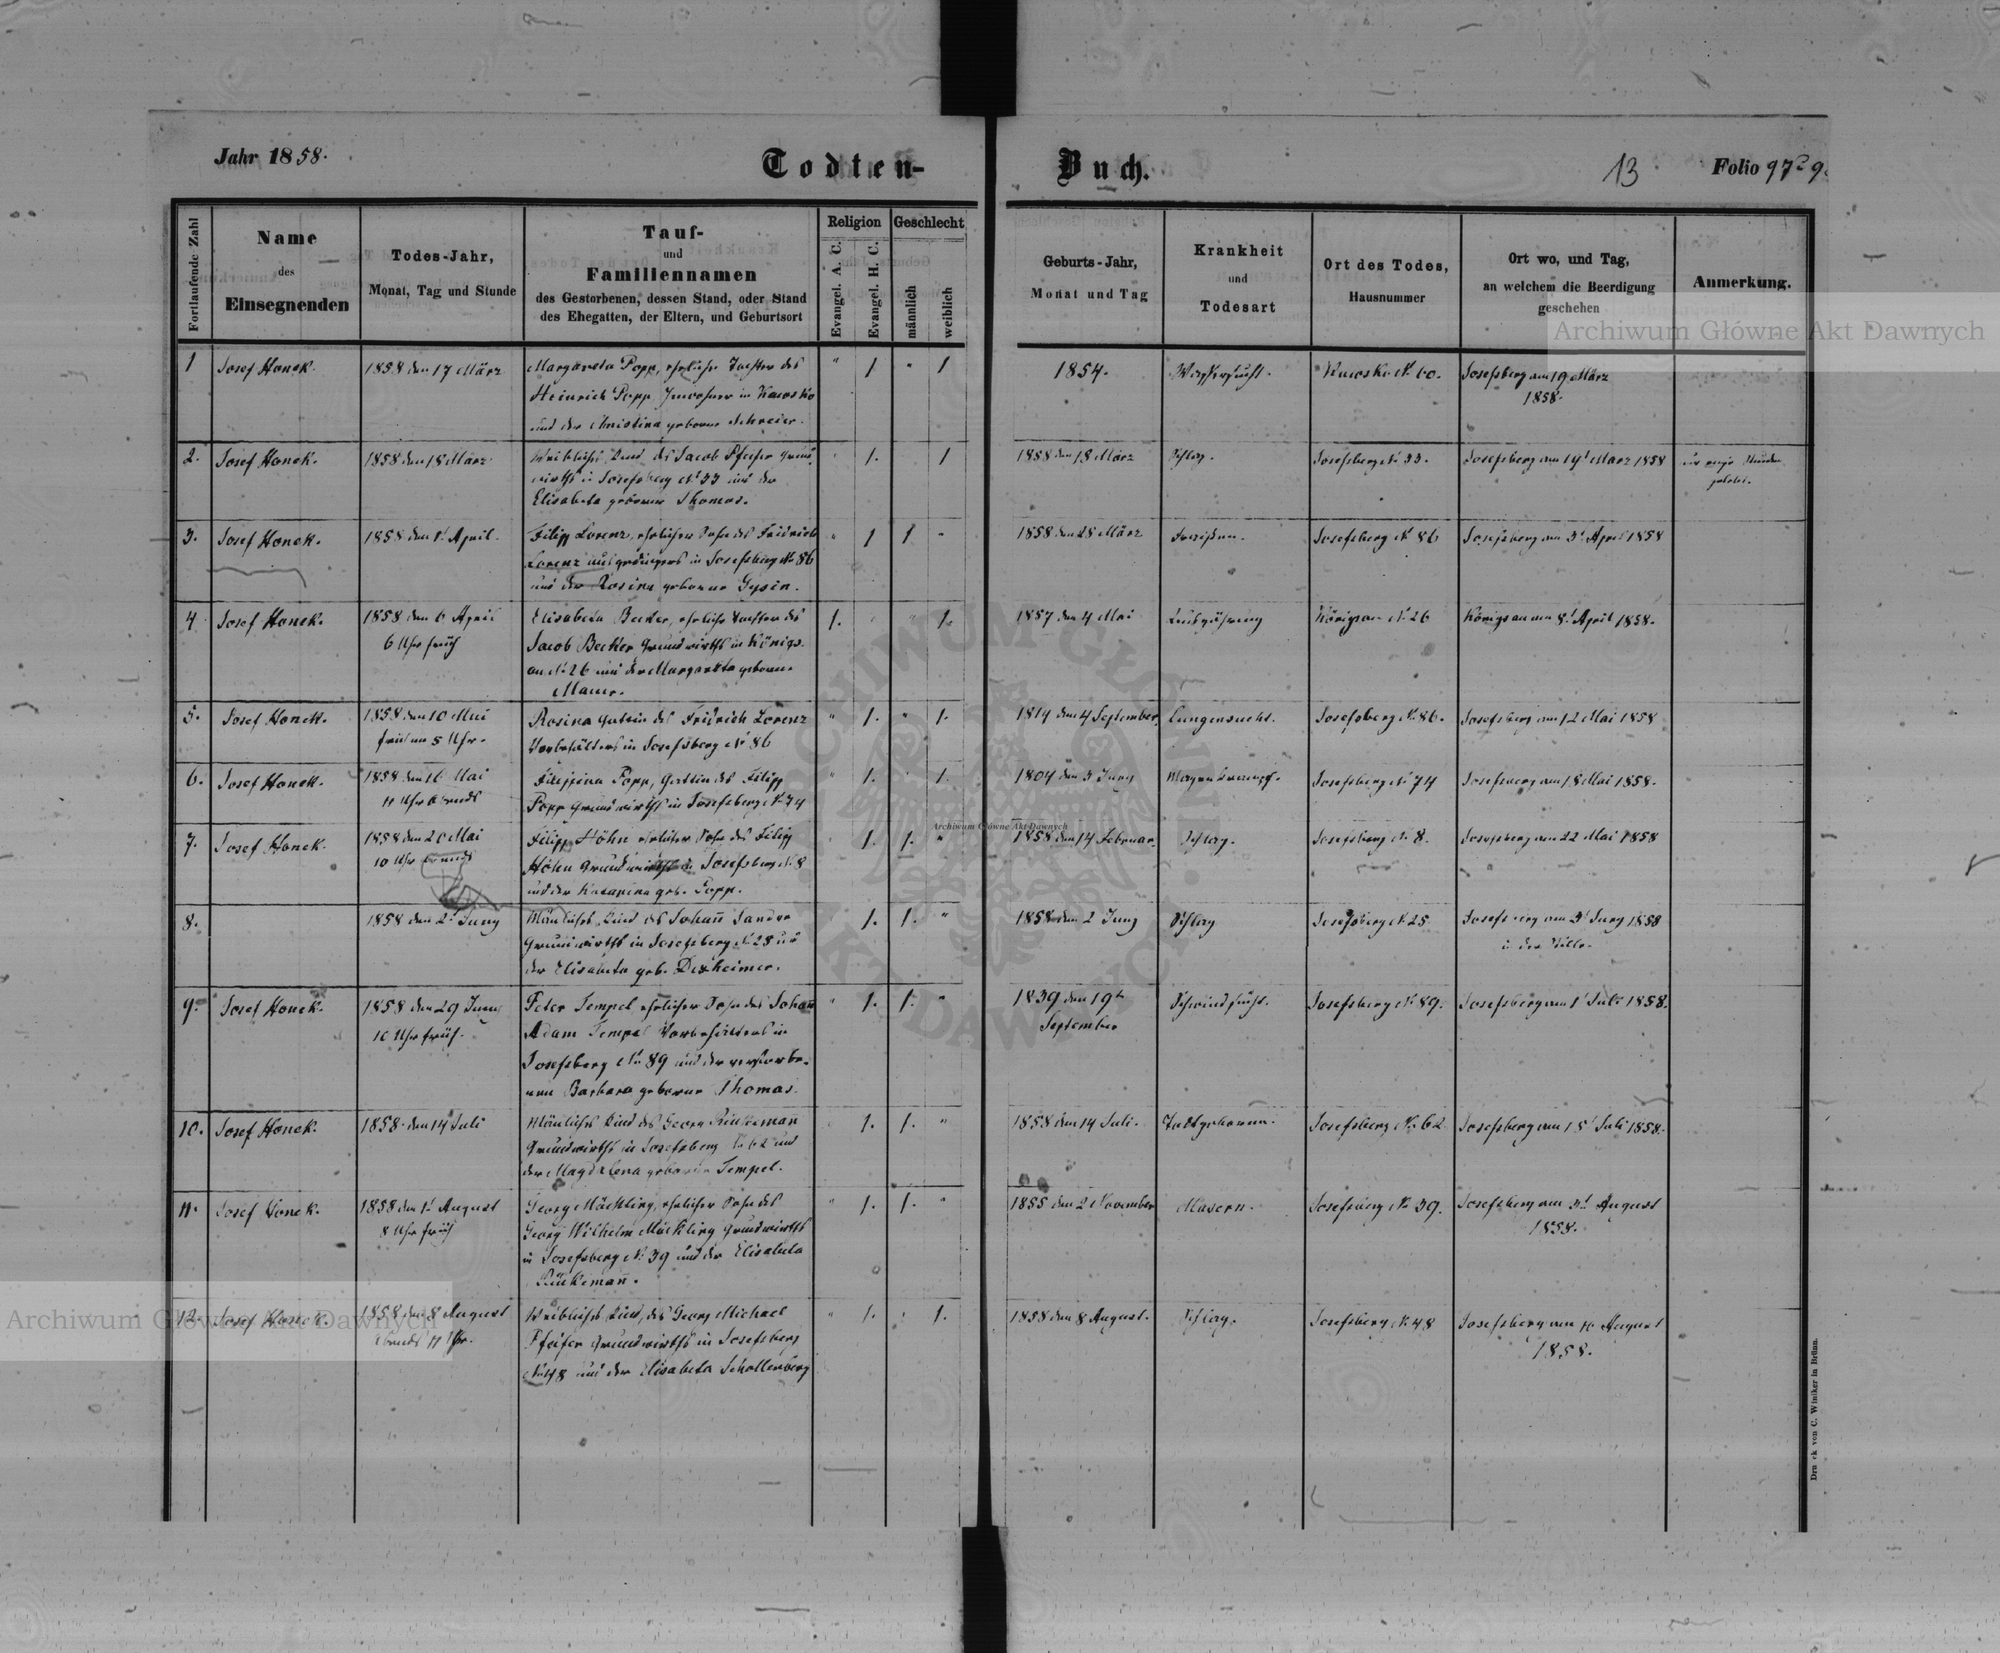 Jahr 1858.
Todten-
Buch.
13
Folio 97
Fortlaufende Zahl
Name
des
Einsegnenden
Todes-Jahr,
Monat, Tag und Stunde
Tauf-
und
Familiennamen
des Gestorbenen, dessen Stand, oder Stand
des Ehegatten, der Eltern, und Geburtsort
Religion
Evangel. A. C.
Evangel. H. C.
Geschlecht
männlich
weiblich
Geburts-Jahr,
Monat und Tag
Krankheit
und
Todesart
Ort des Todes,
Hausnummer
Ort wo, und Tag,
an welchem die Beerdigung
geschehen
Anmerkung.
1 Josef Honek. 1858 den 17 März Margareta Popp, eheliche Tochter des " 1 " 1 1854. Wassersucht. No 60. Josefsberg am 19 März
Heinrich Popp, Inwohner in 1858.
und der Christina geborne Schreier.
2. Josef Honek. 1858 den 18 März Weibliches Kind des Jacob Pfeifer Grund- " 1. 1 1858 den 18 März Schlag. Josefsberg No 33. Josefsberg am 19t März 1858
wirths in Josefsberg No 33 und der
Elisabeta geborne Thomas.
3. Josef Honek. 1858 den 1t April. Filipp Lorenz, ehelicher Sohn des Fridrich " 1 1 " 1858 den 28 März Fraisen. Josefsberg No 86 Josefsberg am 3t April 1858
Lorenz in Josefsberg No 86
und der Rosina geborne Gysin.
4 Josef Honek. 1858 den 6 April Elisabeta Becker, eheliche Tochter des 1. " " 1. 1857 den 4 Mai Königsau No 26 Königsau am 8t April 1858.
6 Uhr früh Jacob Becker Grundwirths in Königs-
au No 26 und der Margareta geborne
Mauer.
5. Josef Honek. 1858 den 10 Mai Rosina Gattin des Fridrich Lorenz " 1. " 1. 1819 den 4 September Lungensucht. Josefsberg No 86. Josefsberg am 12 Mai 1858
früh um 5 Uhr. Vorbehälters in Josefsberg No 86
6. Josef Honek. 1858 den 16 Mai Filippina Popp, Gattin des Filipp " 1. " 1. 1804 den 3 Juny Magenkrampf. Josefsberg No 74 Josefsberg am 18 Mai 1858.
11 Uhr Abends Popp Grundwirths in Josefsberg No 74
7. Josef Honek. 1858 den 20 Mai Filipp Höhn ehelicher Sohn des Filipp 1. 1. " 1858 den 14 Februar Schlag. Josefsberg No 8. Josefsberg am 22 Mai 1858
10 Uhr Abends Höhn Grundwirths in Josefsberg No 8
und der Katarina geb. Popp.
8. 1858 den 2t Juny Männliches Kind des Johann Sander 1. 1. " 1858 den 2 Juny Schlag Josefsberg No 25 Josefsberg am 3t Juny 1858
Grundwirths in Josefsberg No 25 und in der Stille.
der Elisabeta geb. Dexheimer.
9. Josef Honek. 1858 den 29 Juny Peter Tempel ehelicher Sohn des Johann " 1. 1. " 1839 den 19t Schwindsucht. Josefsberg No 89. Josefsberg am 1t Juli 1858.
10 Uhr früh. Adam Tempel Vorbehälters in September
Josefsberg No 89 und der verstorbe-
nen Barbara geborne Thomas.
10. Josef Honek. 1858 den 14 Juli Männliches Kind des Georg Rinkemann 1. 1. " 1858 den 14 Juli. Todtgeboren. Josefsberg No 62 Josefsberg am 15t Juli 1858.
Grundwirths in Josefsberg No 62 und
der Magdalena geborne Tempel.
11. Josef Honek. 1858 den 1t August Georg Mäckling, ehelicher Sohn des " 1. 1. " 1855 den 2 November Masern. Josefsberg No 39. Josefsberg am 3t August
8 Uhr früh Georg Wilhelm Mäckling Grundwirths 1858.
in Josefsberg No 39 und der Elisabeta
Rinkemann.
12. Josef Honek. 1858 den 8 August Weibliches Kind, des Georg Michael " 1. " 1. 1858 den 8 August. Schlag. Josefsberg No 48 Josefsberg am 10 August
Abends 11 Uhr. Pfeifer Grundwirths in Josefsberg 1858.
No 48 und der Elisabeta Schollenberg
Druck von C. Winiker in Brünn.
Archiwum Główne Akt Dawnych
Archiwum Główne Akt Dawnych
Archiwum Główne Akt Dawnych
ARCHIWUM GŁÓWNE AKT DAWNYCH